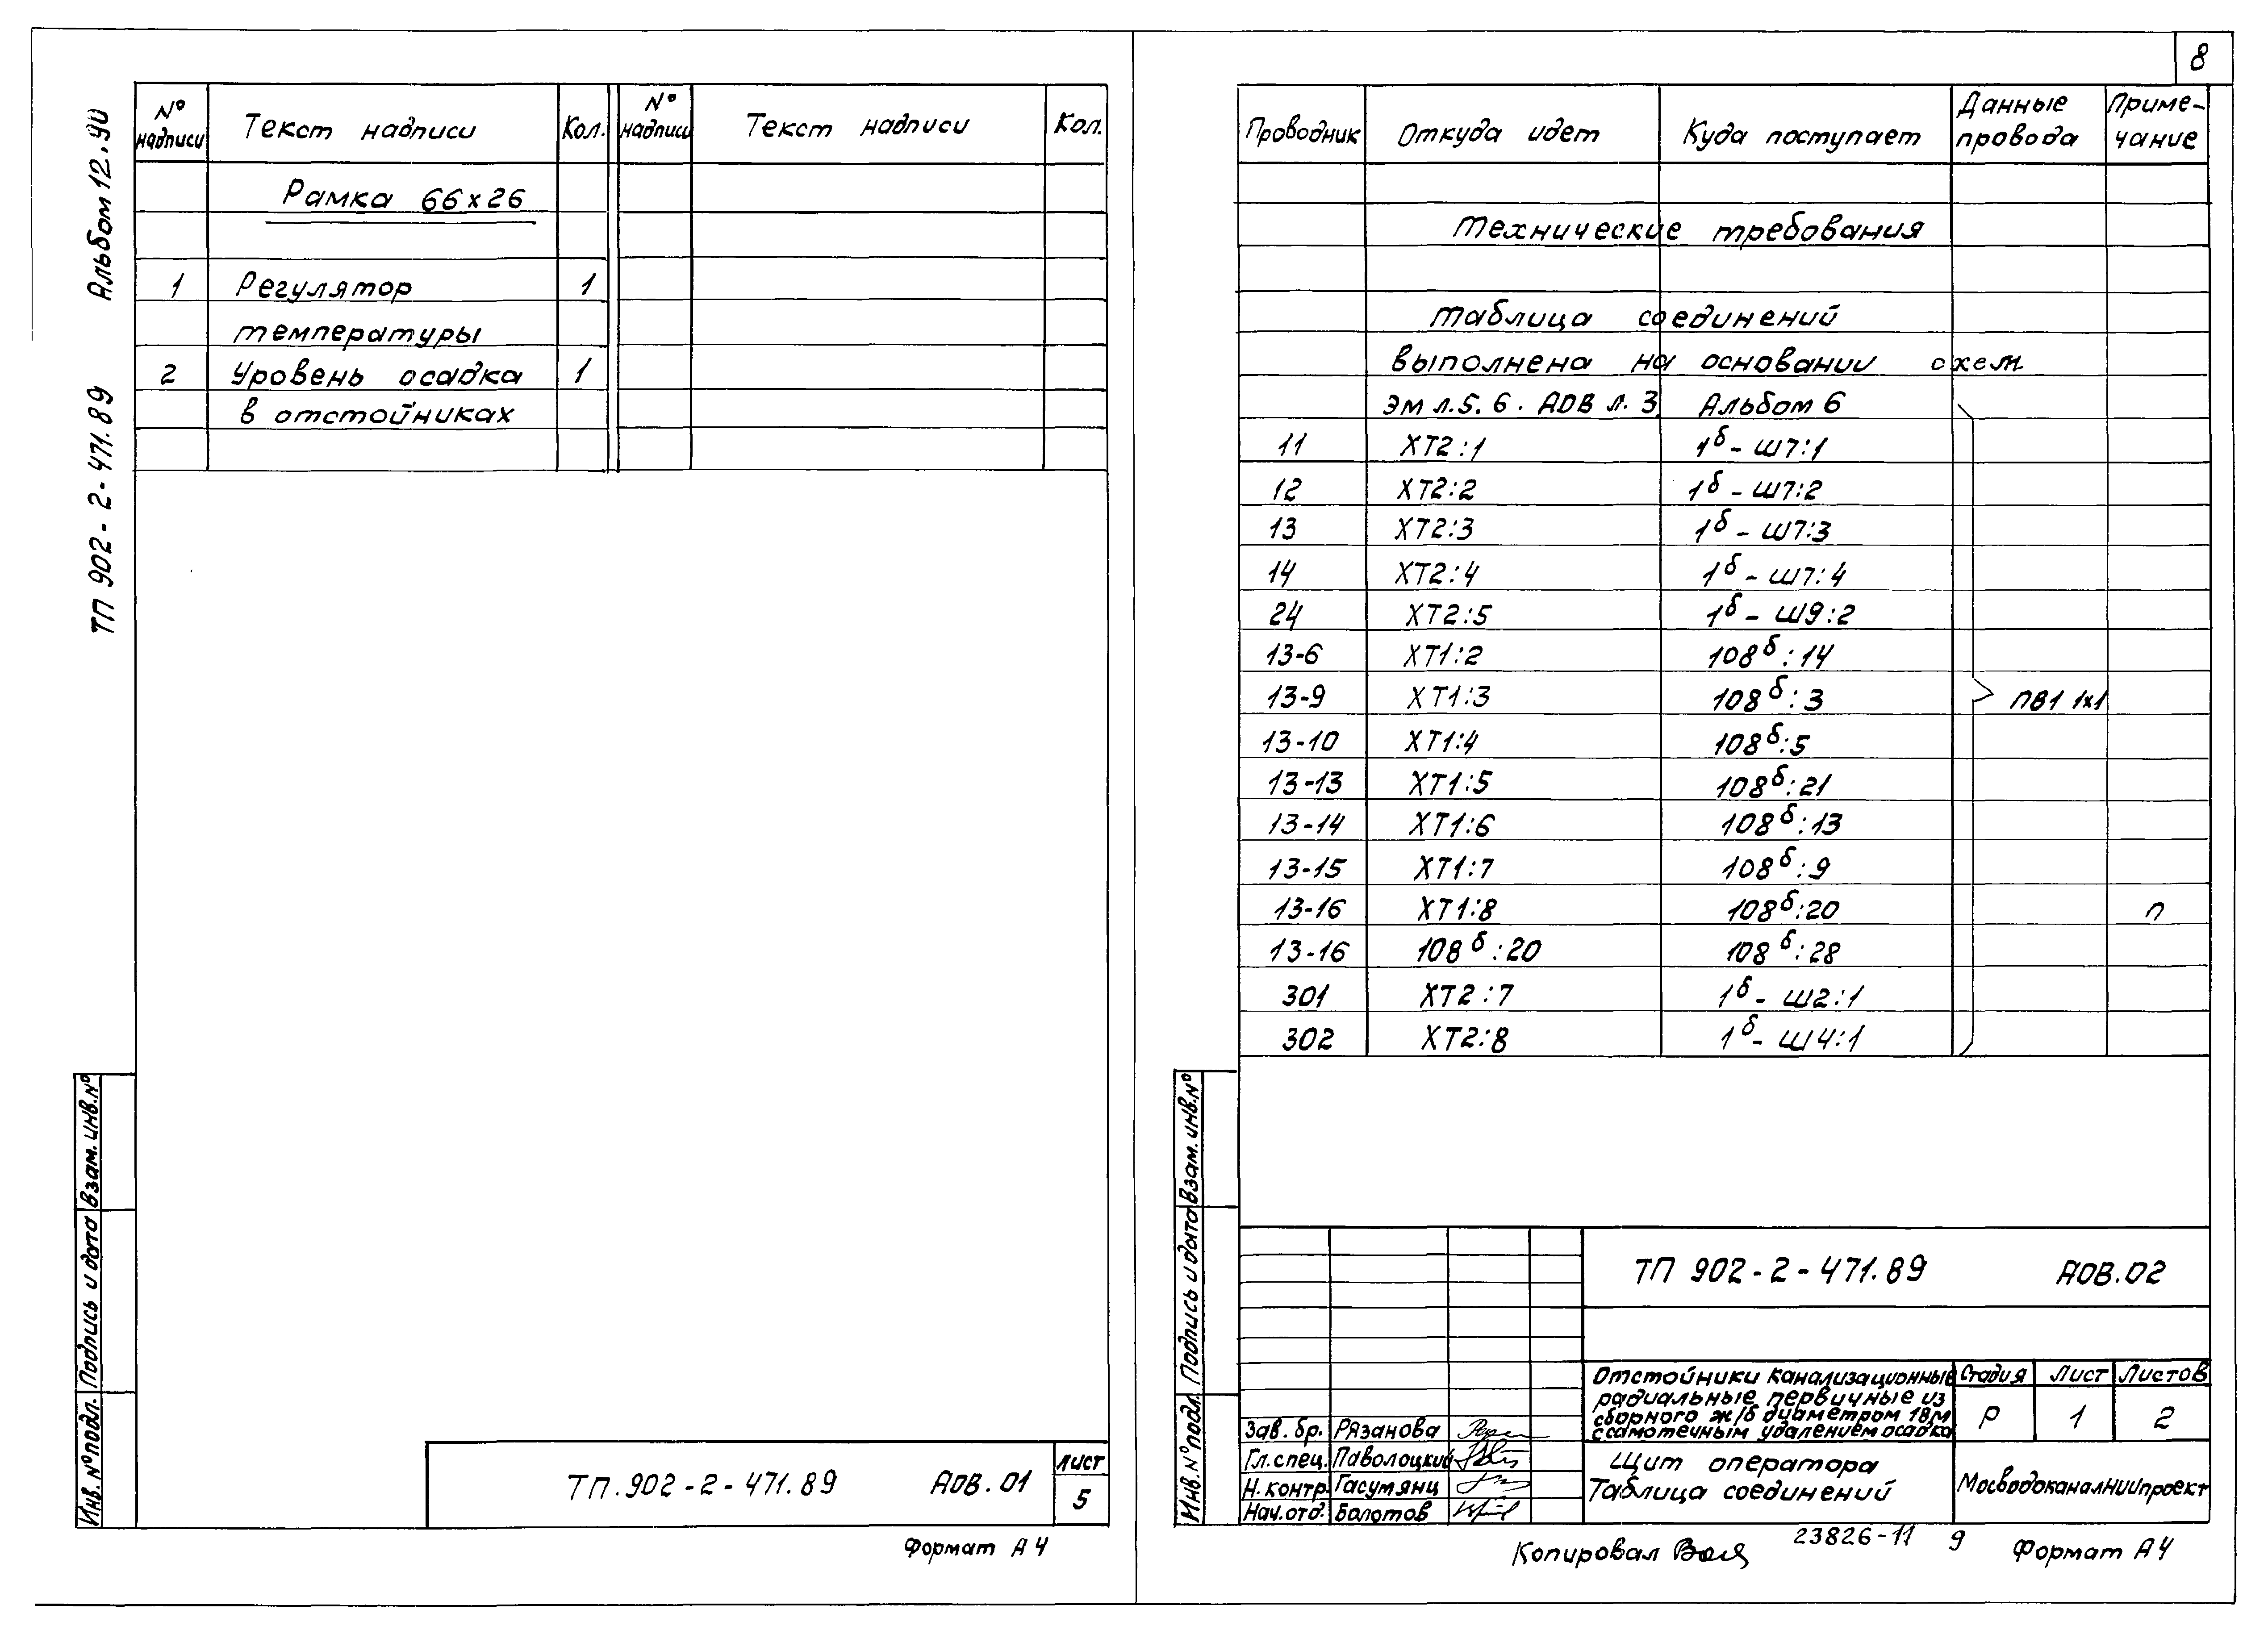 8
Альбом 12.90
ТП 902-2-471.89
№ надписи Текст надписи Кол. № надписи Текст надписи Кол.
Рамка 66х26
1 Регулятор 1
температуры
2 Уровень осадка 1
в отстойниках
Инв.№подл. Подпись и дата Взам.инв.№
ТП.902-2-471.89 АОВ.01 лист 5
Формат А4
Проводник Откуда идет Куда поступает Данные провода Приме-чание
Технические требования
таблица соединений
выполнена на основании схем
ЭМ л.5, 6. АОВ л. 3 Альбом 6
11 ХТ2:1 1б-Ш7:1
12 ХТ2:2 1б-Ш7:2
13 ХТ2:3 1б-Ш7:3
14 ХТ2:4 1б-Ш7:4
24 ХТ2:5 1б-Ш9:2
13-6 ХТ1:2 108б:14
13-9 ХТ1:3 108б:3 ПВ1 1х1
13-10 ХТ1:4 108б:5
13-13 ХТ1:5 108б:21
13-14 ХТ1:6 108б:13
13-15 ХТ1:7 108б:9
13-16 ХТ1:8 108б:20 п
13-16 108б:20 108б:28
301 ХТ2:7 1б-Ш2:1
302 ХТ2:8 1б-Ш4:1
Инв.№подл. Подпись и дата Взам.инв.№
ТП 902-2-471.89 АОВ.02
Отстойники канализационные
радиальные первичные из
сборного ж/б диаметром 18м
с самотечным удалением осадка
Стадия Лист Листов
Р 1 2
Зав.бр. Рязанова
Гл.спец. Паволоцкий
Н.контр. Гасумянц
Нач.отд. Болотов
Щит оператора
Таблица соединений
Мосводоканалниипроект
Копировал 23826-11 9 Формат А4